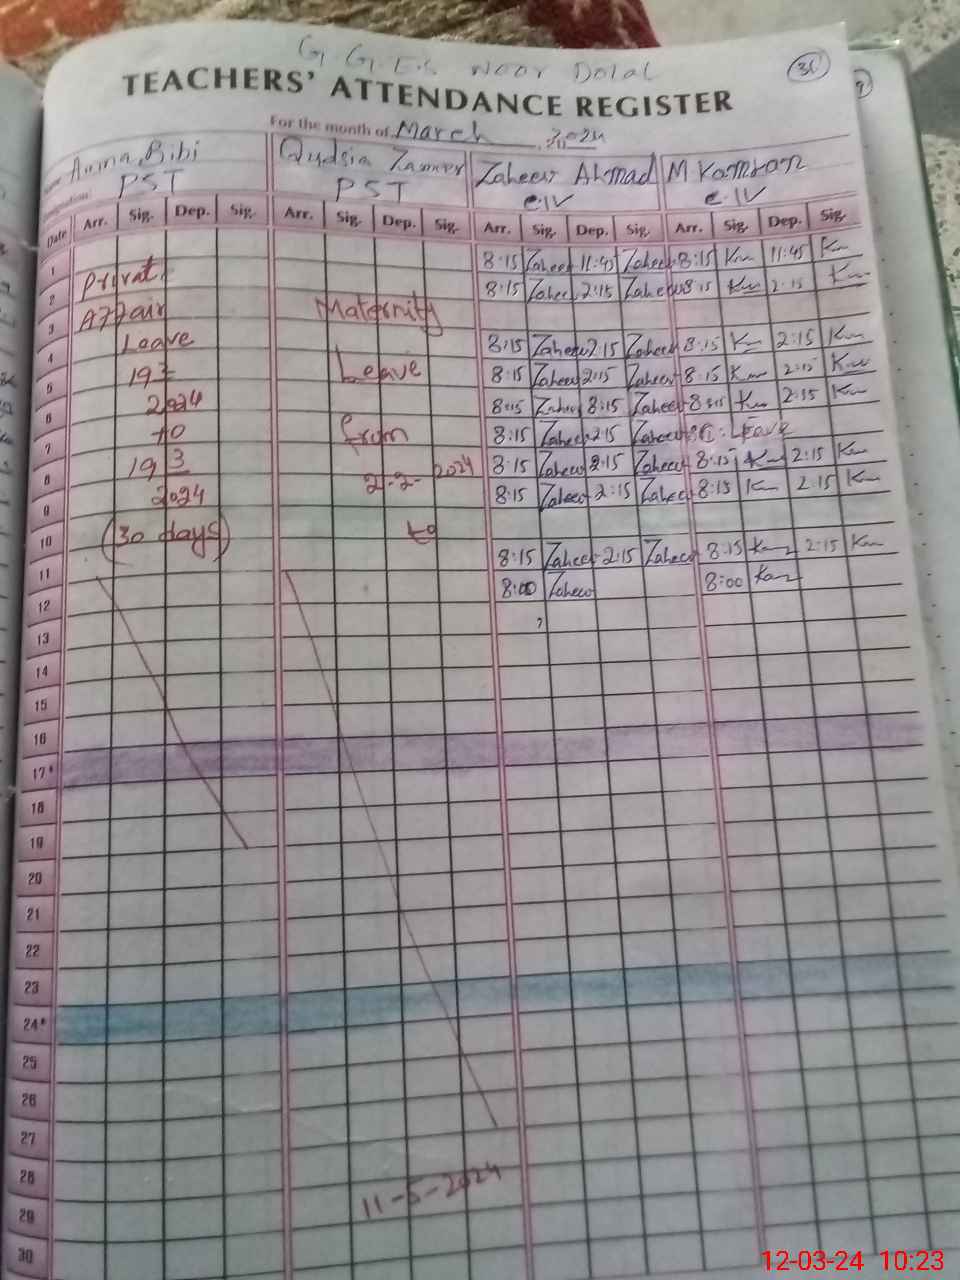 G. G. E. S Noor Dolal
36
TEACHERS' ATTENDANCE REGISTER
For the month of March, 2024
Name Amna Bibi Qudsia Zameer Zaheer Ahmad M Kamran
Designation: PST PST C.IV C.IV
Date Arr. Sig. Dep. Sig. Arr. Sig. Dep. Sig. Arr. Sig. Dep. Sig. Arr. Sig. Dep. Sig.
1 8:15 Zaheer 11:45 Zaheer 8:15 Km 11:45 Km
2 Privat 8:15 Zaheer 2:15 Zaheer 8:15 Km 2:15 Km
3 Affair Maternity
4 Leave 8:15 Zaheer 2:15 Zaheer 8:15 Km 2:15 Km
5 19 Leave 8:15 Zaheer 2:15 Zaheer 8:15 Km 2:15 Km
6 2024 8:15 Zaheer 8:15 Zaheer 8:15 Km 2:15 Km
7 to from 8:15 Zaheer 2:15 Zaheer Leave
8 19 3 2-2-2024 8:15 Zaheer 2:15 Zaheer 8:15 Km 2:15 Km
9 2024 8:15 Zaheer 2:15 Zaheer 8:15 Km 2:15 Km
10 (30 days) to
11 8:15 Zaheer 2:15 Zaheer 8:15 Km 2:15 Km
12 8:00 Zaheer 8:00 Km
13
14
15
16
17*
18
19
20
21
22
23
24*
25
26
27
28 11-5-2024
29
30
12-03-24 10:23